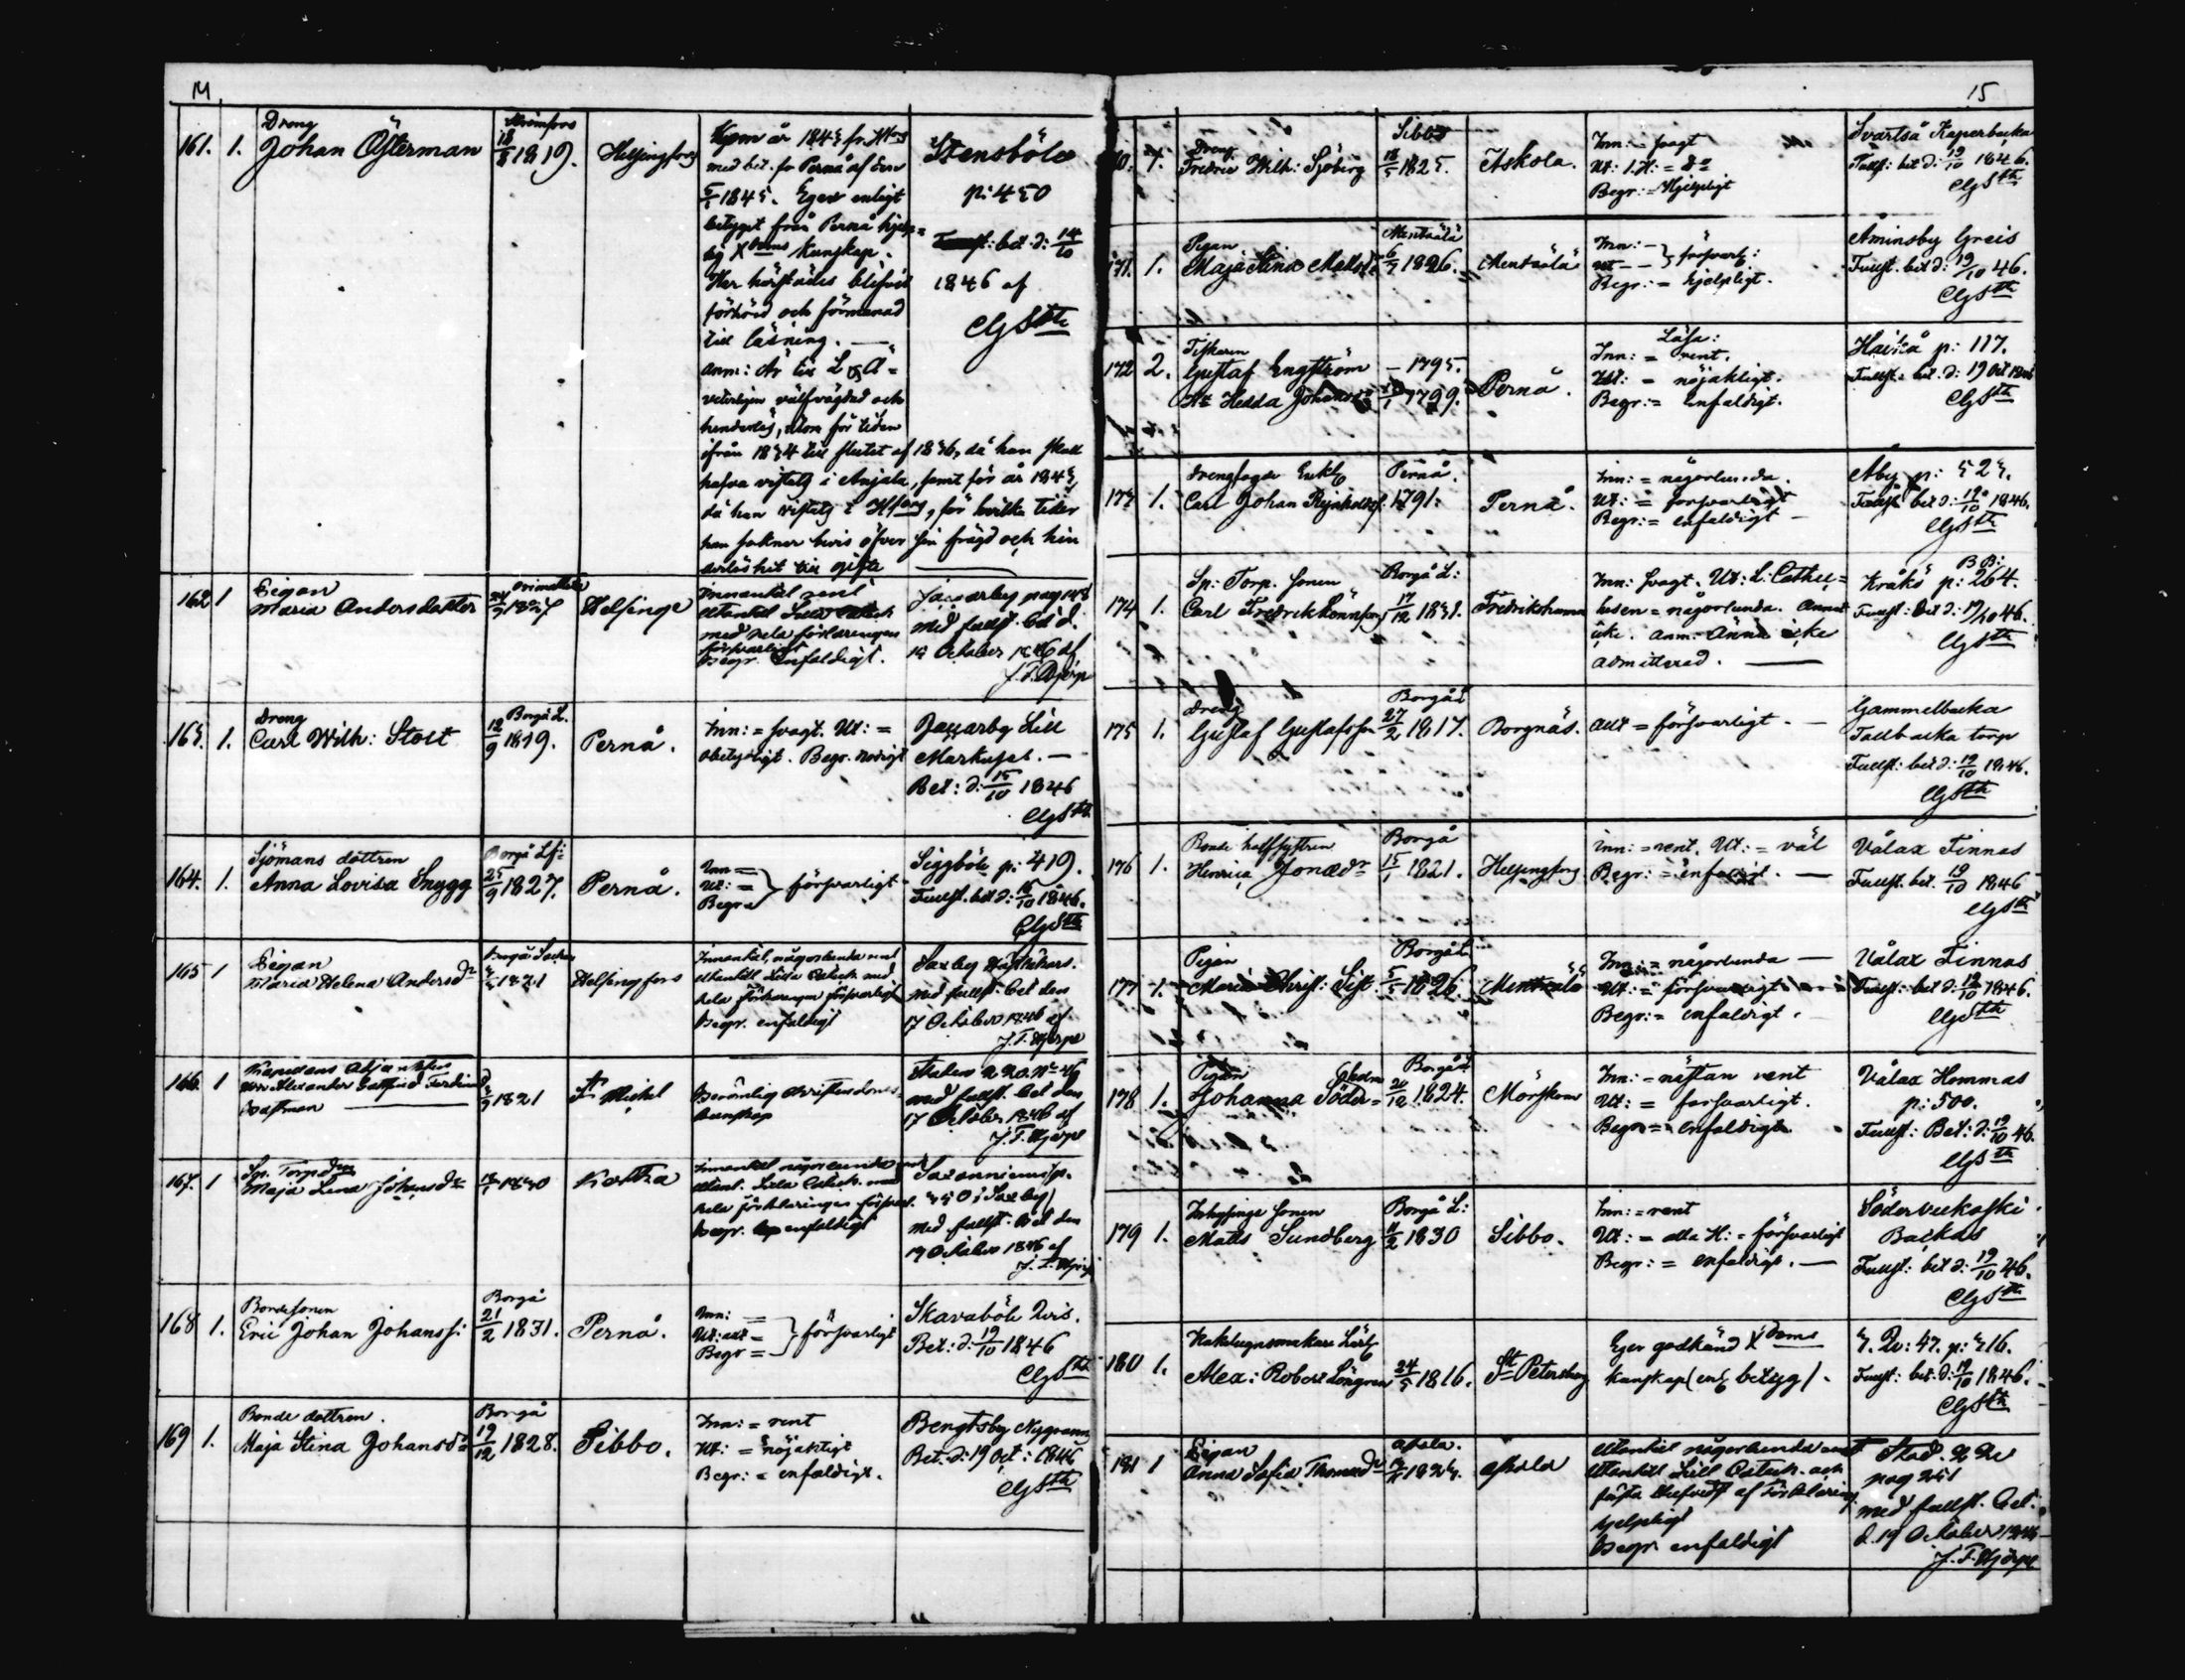 14
161. 1. Dreng
Johan Österman
Strömfors
18/8 1819.
Helsingfors
Kom år 1845 fr. Hfors
med bet. fr Pernå af den
1845. Eger enligt
betyget från Pernå hjelp=
lig Xdoms kunskap.
Här härstädes blifvit
förhörd och förmanad
till läsning. —
Anm: Är till L. o. Ä=
välfrägdad och
hinderlös, utom för tiden
ifrån 1834 till slutet af 1836, då han skall
hafva vistats i Anjala, samt för år 1845,
då han vistats i Hfors, för hvilka tider
han saknar bevis öfver sin frägd och hin
derlöshet till gifte
Stensböle
p: 450
Fullst: bet. d: 14/10
1846 af
CGSth
162 1 Pigan
Maria Andersdotter
Orimattila
Helsinge
Innantill rent
Utantill Lilla Catech
med hela förklaringen
försvarligt
Begr. Enfaldigt.
med fullst. bet d.
October 1846 af
J.F. Hjorpe
163. 1. Dreng
Carl Wilh: Stolt
Borgå L.
12/9 1819.
Pernå.
Inn: = svagt. Ut: =
obetydligt. Begr. nödigt
Jackarby Lill
Markusas. —
Bet: d: 15/10 1846
CGSth
164. 1. Sjömans dottren
Anna Lovisa Snygg
25/9 1827.
Pernå.
Inn =
Ut: =
Begr =
försvarligt
Siggböle p: 419.
Fullst. bet d: 16/10 1846.
CGSth
165 1 Pigan
Maria Helena Andersdr
Borgå Socken
1821
Helsingfors
Innantill, någorlunda rent
Utantill Lilla Catech. med
hela förklaringen försvarligt
Begr. enfaldigt
Saxby
med fullst. bet den
17 October 1846 af
J.F. Hjorpe
166. 1 Kapellans Adjunkten
Herr Alexander Gottfried Ferdinand
1821
St Michel
Berömlig Christendoms-
kunskap
Staden
med fullst. bet den
17 October 1846 af
J.F. Hjorpe
167. 1 Sp. Torp.
Maja Lena Johansdr
1830
Innantill någorlunda rent
Utant. Lilla Catech. med
hela förklaringen försvarl.
Begr. enfaldigt
i Saxby
med fullst. bet den
19 October 1846 af
J.F. Hjorpe
168 1. Bondesonen
Eric Johan Johanss:
Borgå
21/2 1831.
Pernå.
Inn: =
Ut: allt =
Begr =
försvarligt
Skavaböle Qvis.
Bet: d: 19/10 1846
CGSth
169 1. Bonde dottren.
Maja Stina Johansdr
Borgå
19/12 1828.
Sibbo.
Inn: = rent
Ut: = nöjaktigt
Begr: = enfaldigt.
Bengtsby Nygrann
Bet. d: 19 Oct: 1846
CGSth
15
170. 1. Dreng
Fredric Wilh: Sjöberg
Sibbo
18/5 1825.
Askola.
Inn: = svagt
Ut: l. H: = do
Begr: = Hjelpligt
Svartså Kaperbacka
Fullst: bet d: 19/10 1846.
CGSth
171. 1. Pigan
Maja Stina Mattsdr
Mäntsälä
6/7 1826.
Mäntsälä
Inn: —
Ut — —
försvarl:
Begr: = hjelpligt.
Åminsby Greis
Fullst. bet d: 19/10 46.
CGSth
172 2. Fiskaren
Gustaf Engström
— 1795.
H: Hedda Johansdr
1799.
Pernå.
Läsa:
Inn: = rent.
Ut: = nöjaktigt.
Begr: = Enfaldigt.
Haikå p: 117.
Fullst: bet. d: 19 Oct 1846
CGSth
173 1. Drengfogde Enkl
Carl Johan Reinholdss:
Pernå.
1791.
Pernå.
Inn: = någorlunda.
Ut: = försvarligt
Begr: = enfaldigt —
Åby p: 525.
Fullst: bet d: 19/10 1846.
CGSth
174 1. Sp: Torp. sonen
Carl Fredrik Lönnfors
Borgå L:
17/12 1831.
Fredrikshamn
Inn: svagt. Ut: L: Cathe=
kesen = någorlunda. Annat
icke. Anm. Ännu icke
admitterad. —
BB:
Kråkö p: 264.
Fullst: Bet d: 19/10 46.
CGSth
175 1. Dreng
Gustaf Gustafsson
Borgå L
27/2 1817.
Borgnäs.
allt = försvarligt. —
Gammelbacka
Tallbacka torp
Fullst: bet d: 19/10 1846.
CGSth
176 1. Bonde halfsystren
Henrica Jonædr
Borgå
15/1 1821.
Helsingfors
Inn: = rent. Ut: = väl
Begr: = enfaldigt. —
Vålax Finnas
Fullst. bet. 19/10 1846
CGSth
177 1. Pigan
Maria Christ: Sist.
Borgå L
5/5 1826
Mäntsälä
Inn: = någorlunda —
Ut: = försvarligt
Begr: = enfaldigt.
Vålax Finnas
Fullst: bet d: 19/10 1846.
CGSth
178 1. Pigan
Johanna Söder=holm
Borgå L
20/12 1824.
Mörskom
Inn: = nästan rent
Ut: = försvarligt.
Begr: = enfaldigt
Vålax Hommas
p: 500.
Fullst: Bet: d: 19/10 46.
CGSth
179 1. Inhysings sonen
Matts Sundberg
Borgå L:
11/2 1830
Sibbo.
Inn: = rent
Ut: = alla H: = försvarligt
Begr: = enfaldigt. —
Söderveckoski
Backas
Fullst: bet d: 19/10 46.
CGSth
180 1. Kakelugnsmakare Lärl
Alex: Robert Löngren
24/5 1816.
St Petersburg
Eger godkänd Xdoms
kunskap (enl betyg).
3. Qv: 47. p: 316.
Fullst: bet. d: 19/10 1846.
CGSth
181 1 Pigan
Anna Sofia Thomasdr
Askola.
Askola
Utantill någorlunda rent
Utantill Lill Catech. och
första Hufvudst af Förklaring
hjelpligt
Begr. enfaldigt
Stad. 2 Qv
pag 251
med fullst. bet.
d. 19 October 1846
J.F. Hjorpe